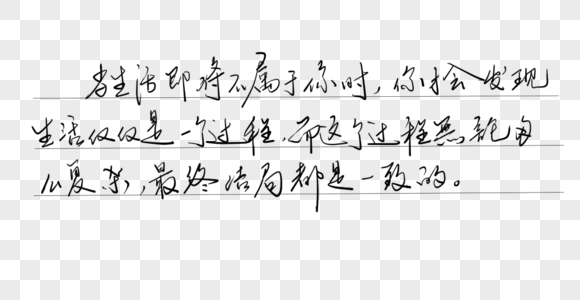 当生活即将不属于你时,你才会发现
生活仅仅是一个过程,而这个过程无论多
么复杂,最终结局都是一致的。